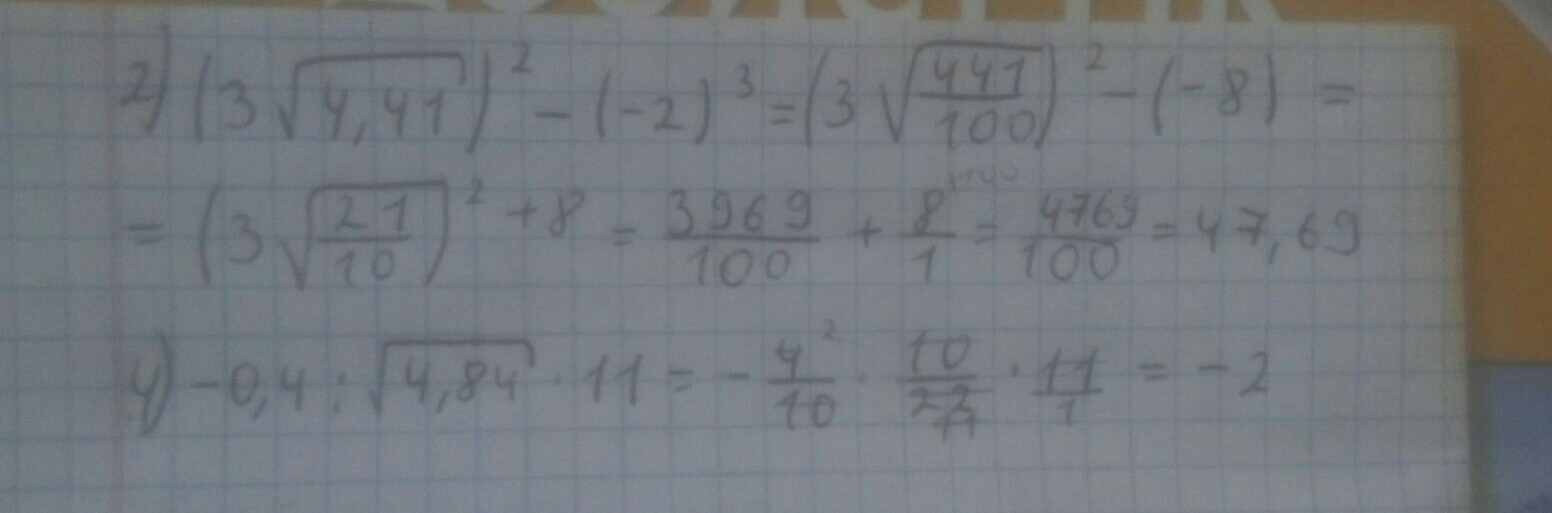 2) (3√4,41)² - (-2)³ = (3√441/100)² - (-8) =
= (3√21/10)² + 8 = 3969/100 + 8/1 = 4769/100 = 47,69
4) -0,4 : √4,84 · 11 = - 4²/10 · 10/22 11 · 11/1 = -2